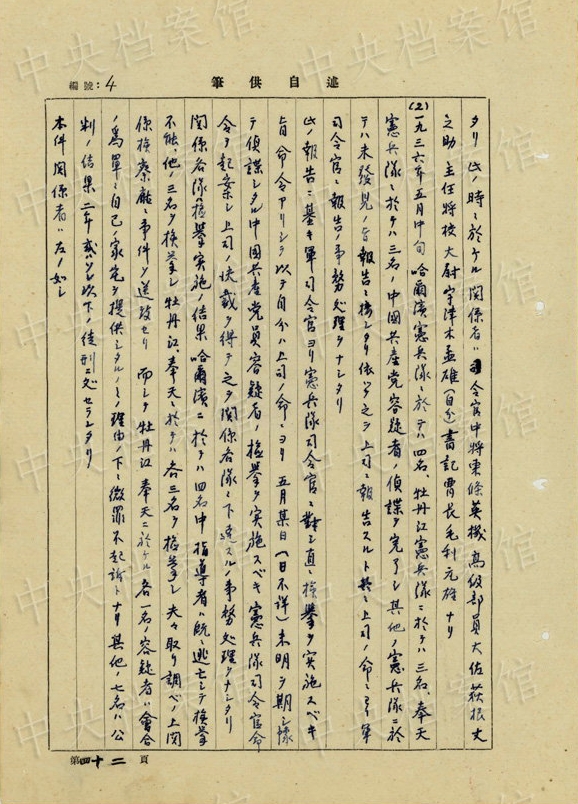 編號:4
筆供自述
タリ此ノ時ニ於ケル関係者ハ司令官中将東條英機高級部員大佐萩根丈
之助主任将校大尉宇津木孟雄(自分)書記曹長毛利元雄ナリ
(2)一九三六年五月中旬哈爾濱憲兵隊ニ於テハ四名、牡丹江憲兵隊ニ於テハ三名、奉天
憲兵隊ニ於テハ三名ノ中國共産党容疑者ノ偵諜ヲ完了シ其他ノ憲兵隊ニ於
テハ未発見ノ旨報告ニ接シタリ依ツテ之ヲ上司ニ報告スルト共ニ上司ノ命ニヨリ軍
司令官ニ報告ノ事務処理ヲナシタリ
此ノ報告ニ基キ軍司令官ヨリ憲兵隊司令官ニ對シ直ニ検挙ヲ実施スベキ
旨命令アリシヲ以テ自分ハ上司ノ命ニヨリ五月某日(日不詳)未明ヲ期シ
テ偵諜シタル中國共産党員容疑者ノ検挙ヲ実施スベキ憲兵隊司令官命
令ヲ起案シ上司ノ決裁ヲ得テ之ヲ関係各隊ニ下達スルノ事務処理ヲナシタリ
関係各隊ノ検挙実施ノ結果哈爾濱ニ於テハ四名中指導者ハ既ニ逃亡シテ検挙
不能、他ノ三名ヲ検挙シ牡丹江奉天ニ於テハ各三名ヲ検挙シ夫々取リ調ベノ上関
係検察廳ニ事件ヲ送致セリ 而シテ牡丹江奉天ニ於ケル各一名ノ容疑者ハ會合
ノ為單ニ自己ノ家宅ヲ提供シタルノミノ理由ノ下ニ微罪不起訴トナリ其他ノ七名ハ公
判ノ結果二年或ハ以下ノ徒刑ニ処セラレタリ
本件関係者ハ左ノ如シ
第四十二頁
中央档案馆